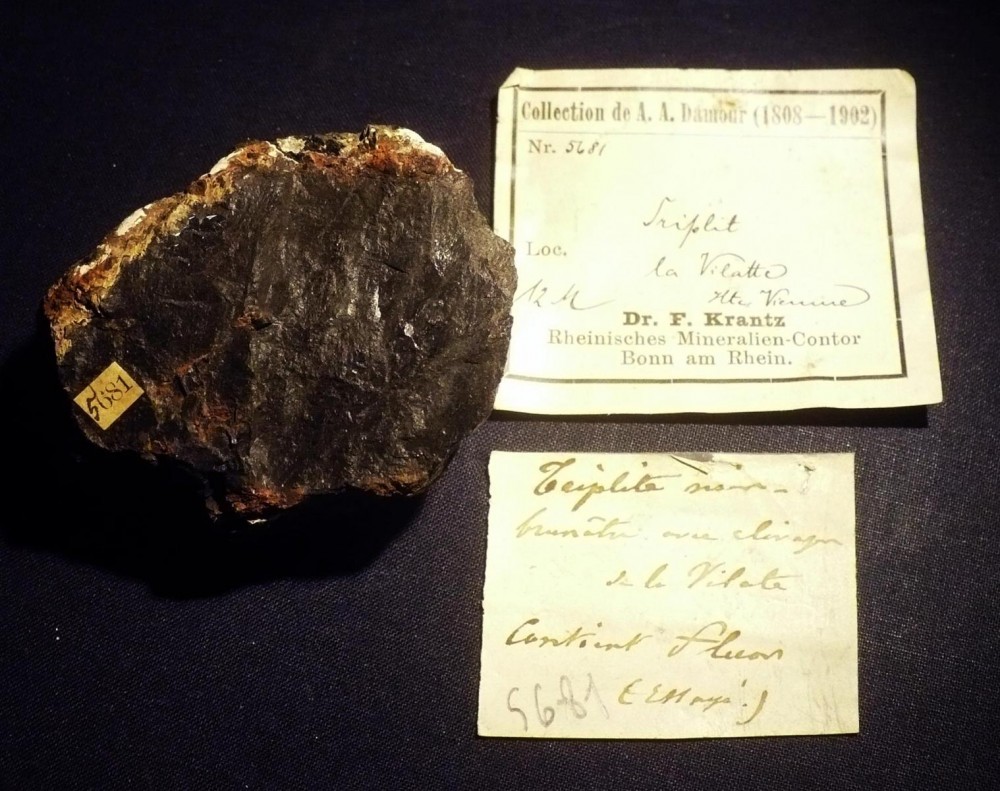 5681
Collection de A. A. Damour (1808—1902)
Nr. 5681
Triplit
Loc.
la Vilatte
12 M
Hte Vienne
Dr. F. Krantz
Rheinisches Mineralien-Contor
Bonn am Rhein.
Triplite noir-
brunâtre avec clivage
de la Vilate
Contient fluor
(Essayé.)
5681